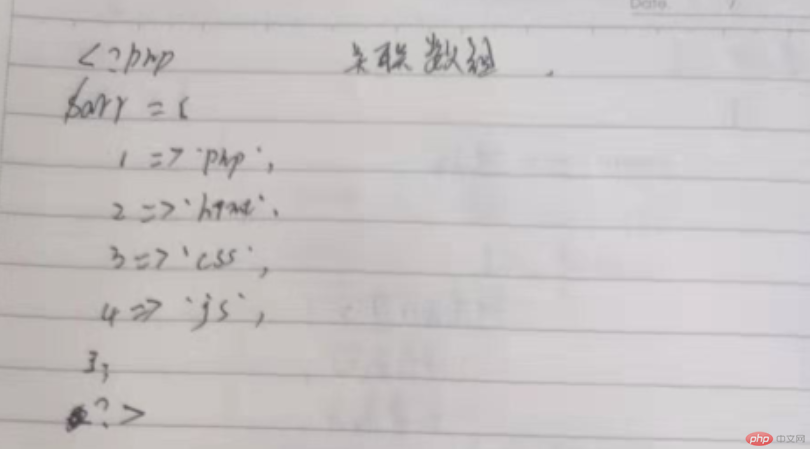 Date
<?php 关联数组.
$arr = [
1 => 'php',
2 => 'html',
3 => 'css',
4 => 'js',
];
?>
php 中文网